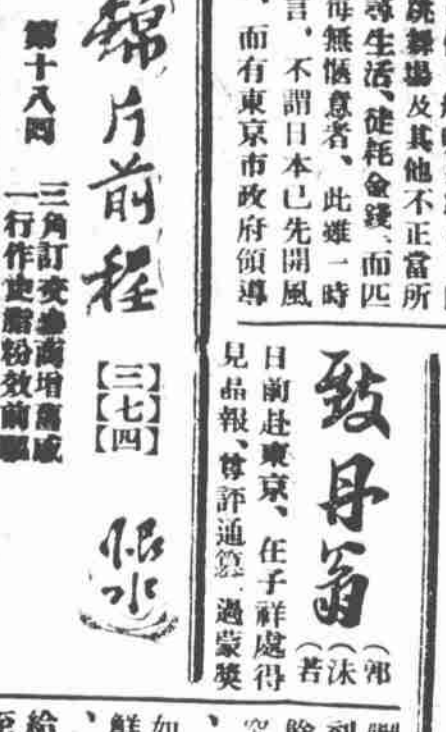 跳舞場及其他不正當所
尋生活、徒耗金錢、而匹
每無愜意者、此雖一時
言、不謂日本已先開風
、而有東京市政府領導
致丹翁
(郭
(沫
(若
日前赴東京、在子祥處得
見晶報、尊評通篡、過蒙獎
錦片前程
【三七四】
恨水
第十八回
三角訂交 面增舊感
一行作吏脂粉效前驅
如
鮮
、給